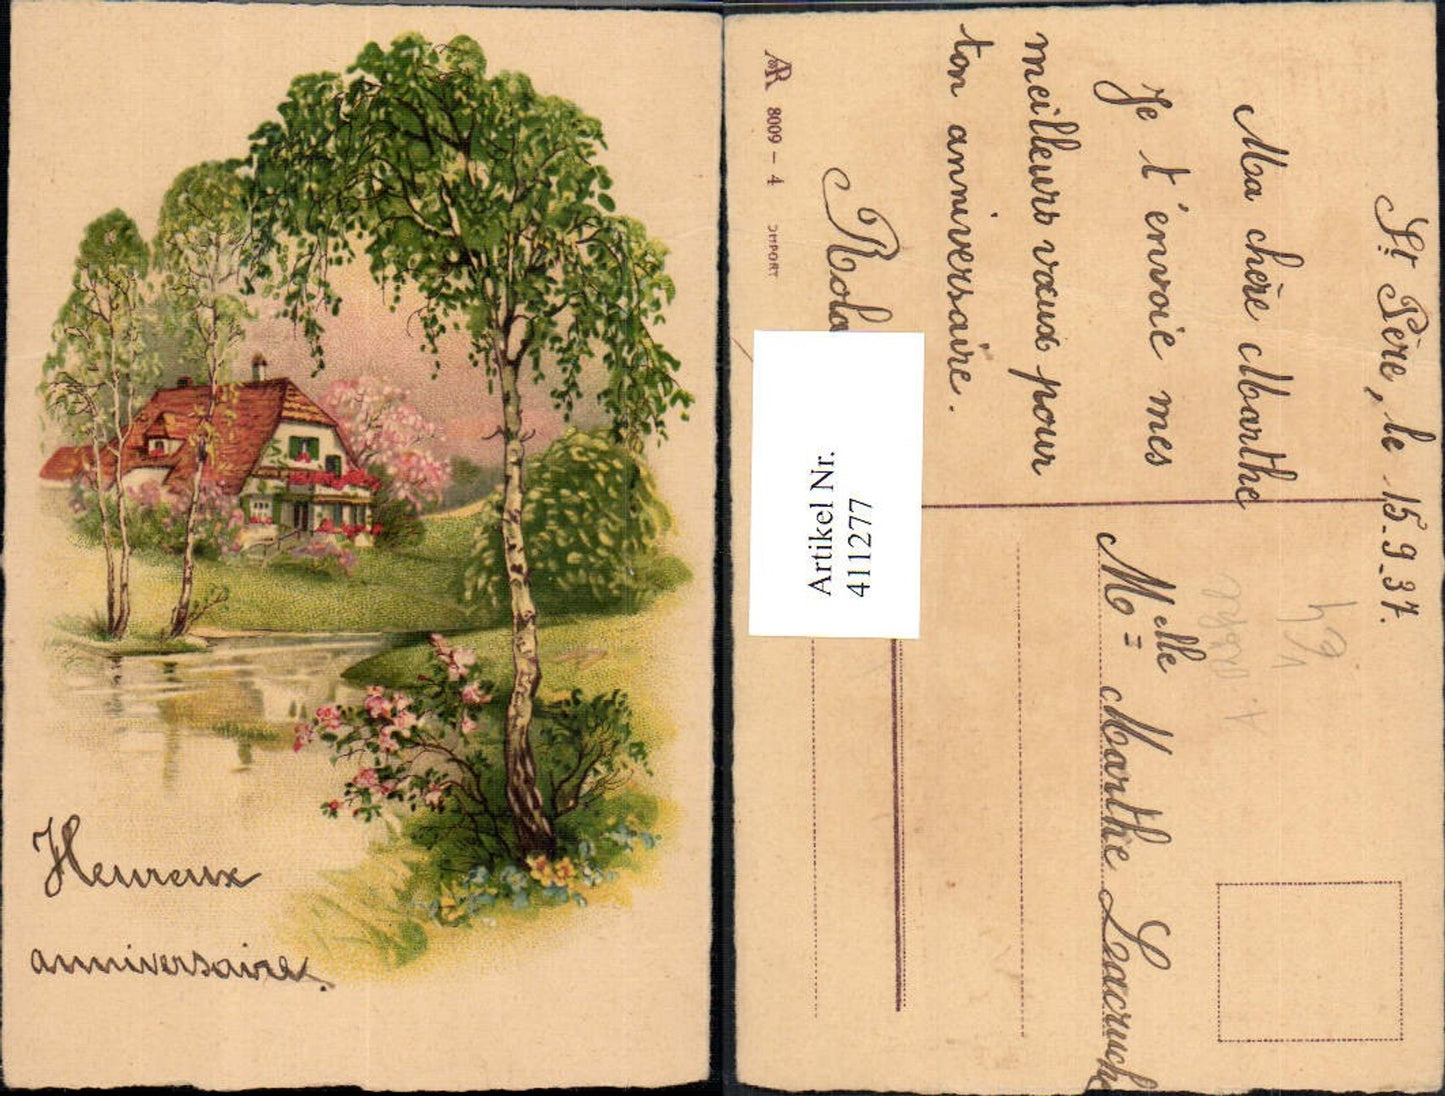 Heureux
anniversaire.
St Père, le 15-9-37.
Ma chère Marthe
Je t'envoie mes
meilleurs vœux pour
ton anniversaire.
AR 8009 - 4 IMPORT
Artikel Nr.
4111277
Melle Marthe